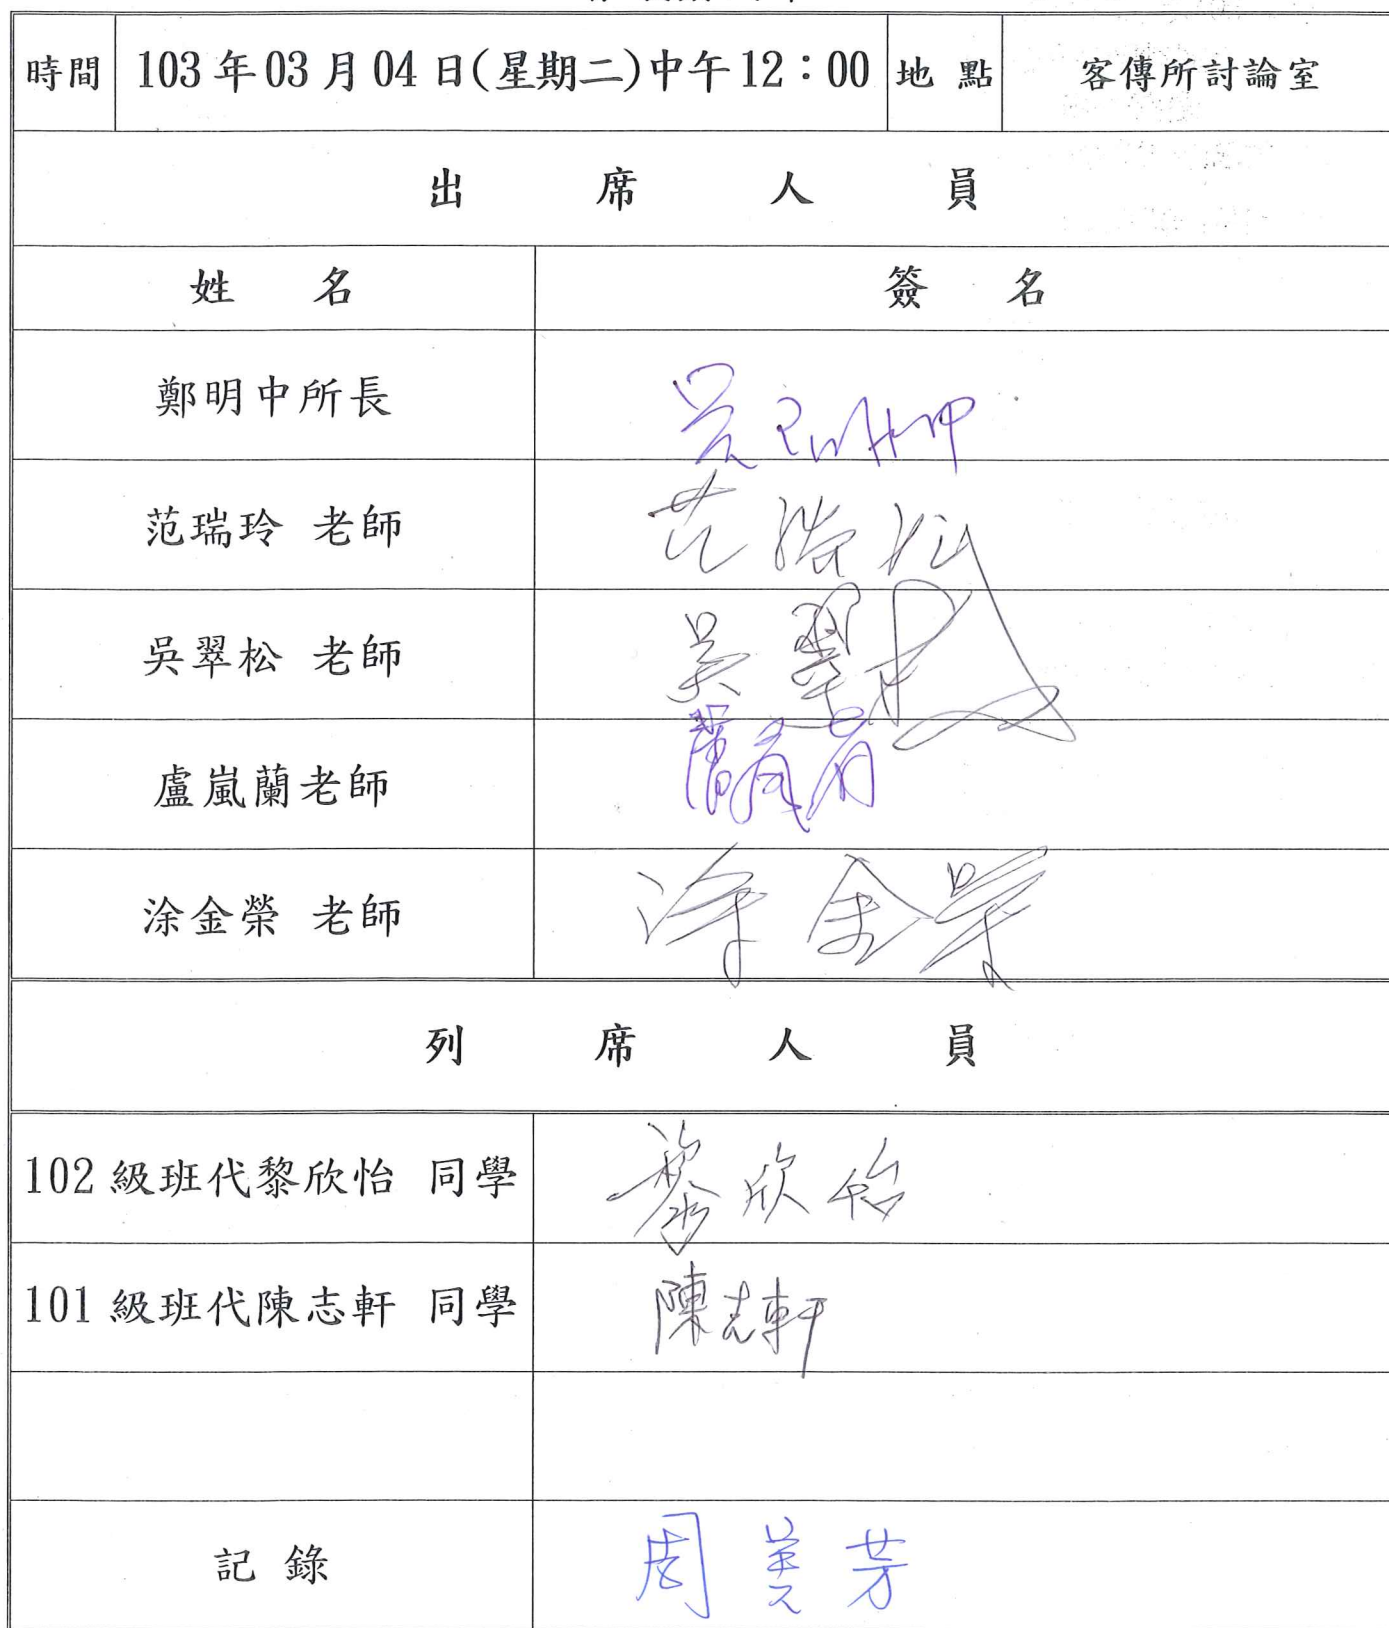 時間 103年03月04日(星期二)中午12：00 地 點 客傳所討論室
出 席 人 員
姓 名 簽 名
鄭明中所長
范瑞玲 老師 范瑞玲
吳翠松 老師 吳翠松
盧嵐蘭老師
涂金榮 老師 涂金榮
列 席 人 員
102級班代黎欣怡 同學 黎欣怡
101級班代陳志軒 同學 陳志軒
記 錄 周美芳